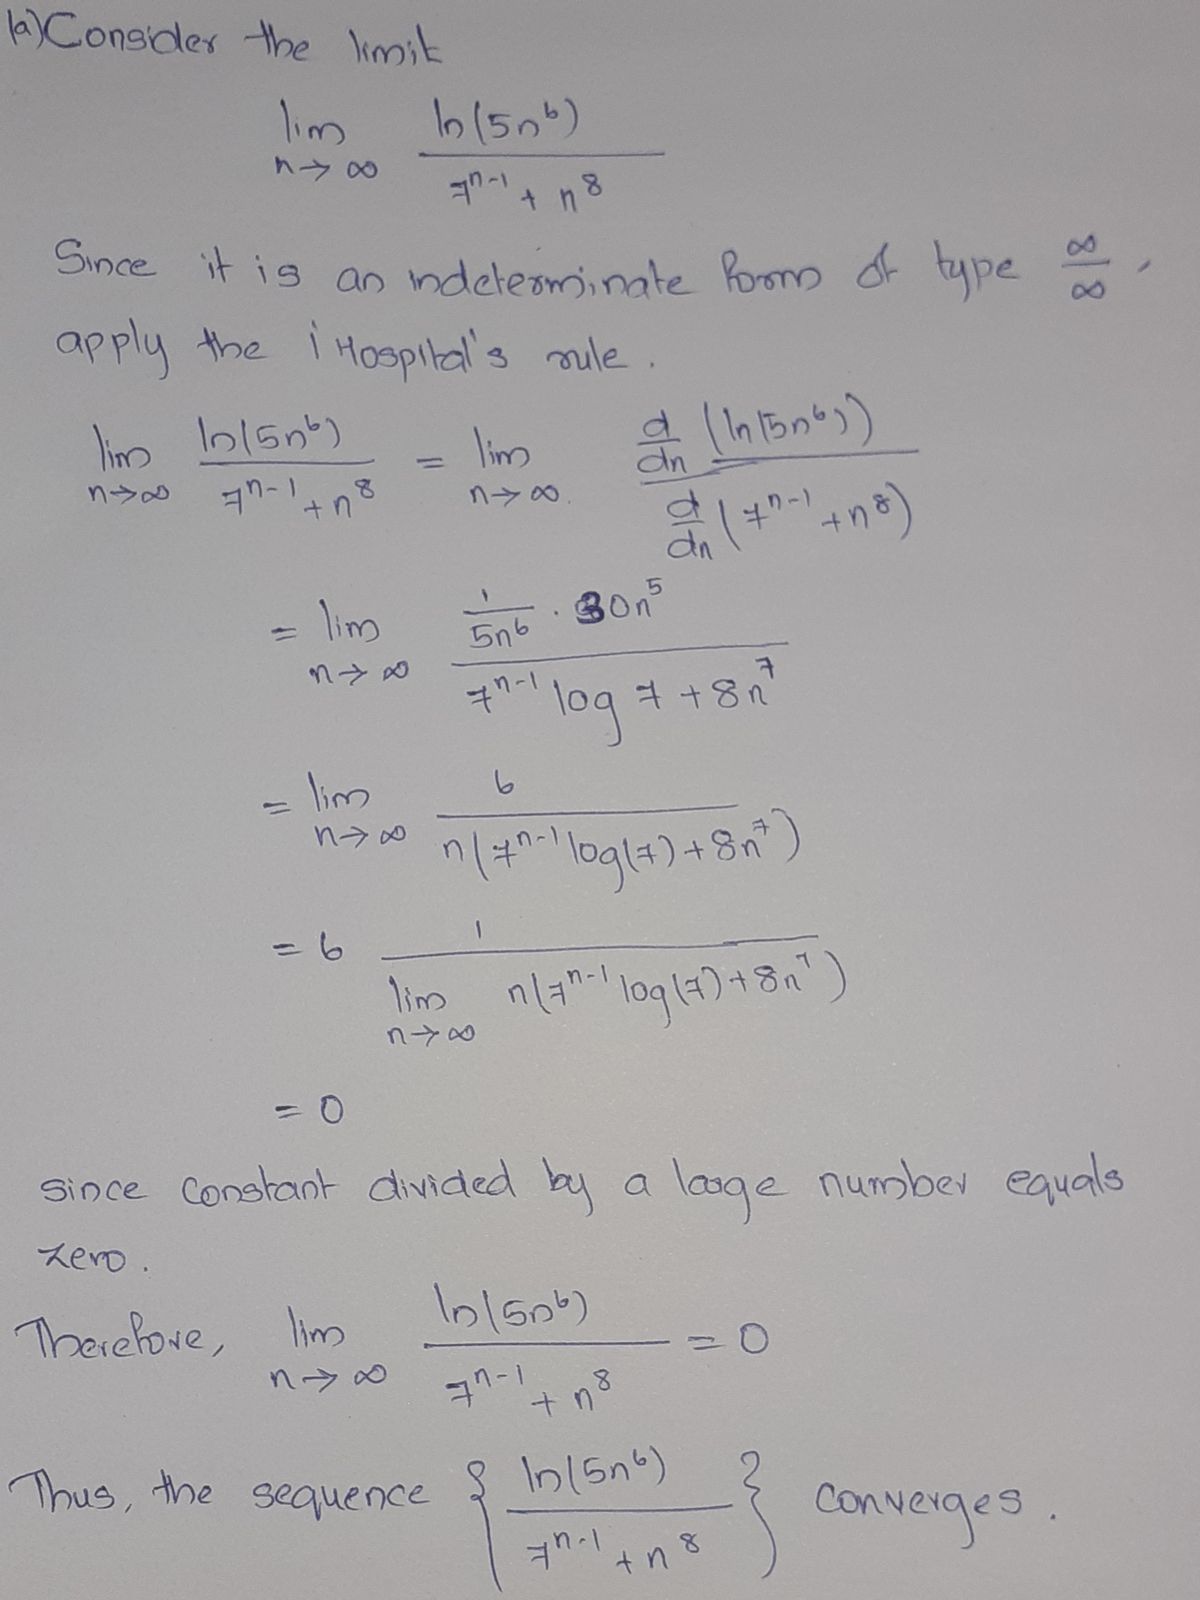 1a) Consider the limit
lim n→∞ ln(5n^6) / (7^(n-1) + n^8)
Since it is an indeterminate form of type ∞/∞,
apply the l Hospital's rule.
lim n→∞ ln(5n^6) / (7^(n-1) + n^8) = lim n→∞. d/dn (ln(5n^6)) / d/dn (7^(n-1) + n^8)
= lim n→∞ (1/(5n^6) · 30n^5) / (7^(n-1) log 7 + 8n^7)
= lim n→∞ 6 / (n(7^(n-1) log(7) + 8n^7))
= 6 1 / (lim n→∞ n(7^(n-1) log(7) + 8n^7))
= 0
since constant divided by a large number equals
zero.
Therefore, lim n→∞ ln(5n^6) / (7^(n-1) + n^8) = 0
Thus, the sequence { ln(5n^6) / (7^(n-1) + n^8) } converges.